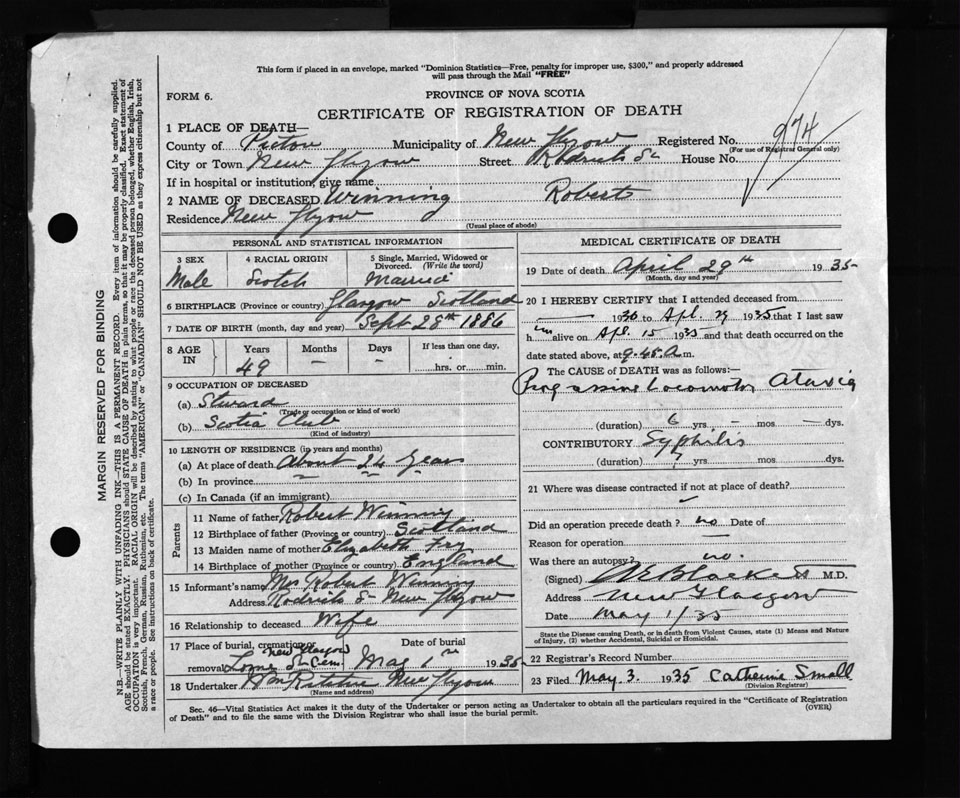 This form if placed in an envelope, marked "Dominion Statistics—Free, penalty for improper use, $300," and properly addressed
will pass through the Mail "FREE"
FORM 6.
PROVINCE OF NOVA SCOTIA
CERTIFICATE OF REGISTRATION OF DEATH
974
1 PLACE OF DEATH—
County of Pictou Municipality of New Glasgow Registered No.
(For use of Registrar General only)
City or Town New Glasgow Street House No.
If in hospital or institution, give name
2 NAME OF DECEASED Winning Robert
Residence New Glasgow
(Usual place of abode)
PERSONAL AND STATISTICAL INFORMATION
3 SEX 4 RACIAL ORIGIN 5 Single, Married, Widowed or
Divorced. (Write the word)
Male Scotch Married
6 BIRTHPLACE (Province or country) Glasgow Scotland
7 DATE OF BIRTH (month, day and year) Sept 28th 1886
8 AGE IN Years Months Days If less than one day,
49 — — hrs. or min.
9 OCCUPATION OF DECEASED
(a) Steward
(Trade or occupation or kind of work)
(b) Scotia Club
(Kind of industry)
10 LENGTH OF RESIDENCE (in years and months)
(a) At place of death About 24 Years
(b) In province
(c) In Canada (if an immigrant)
Parents
11 Name of father Robert Winning
12 Birthplace of father (Province or country) Scotland
13 Maiden name of mother Elizabeth
14 Birthplace of mother (Province or country) England
15 Informant's name Mrs Robert Winning
Address New Glasgow
16 Relationship to deceased Wife
17 Place of burial, cremation or Date of burial
New Glasgow
removal Lorne St. Cem. May 1935
18 Undertaker Wm Ritchie New Glasgow
(Name and address)
MEDICAL CERTIFICATE OF DEATH
19 Date of death April 29th 1935
(Month, day and year)
20 I HEREBY CERTIFY that I attended deceased from
— 1930 to Apl. 29 1935 that I last saw
him alive on Apl. 15 1935 and that death occurred on the
date stated above, at 9.45 A m.
The CAUSE of DEATH was as follows:—
Progressive Locomotor Ataxia
(duration) 6 yrs — mos — dys.
CONTRIBUTORY Syphilis
(duration) yrs mos dys.
21 Where was disease contracted if not at place of death?
Did an operation precede death? no Date of
Reason for operation
Was there an autopsy? no.
(Signed) M.D.
Address New Glasgow
Date May 1/35
State the Disease causing Death, or in death from Violent Causes, state (1) Means and Nature
of Injury, (2) whether Accidental, Suicidal or Homicidal.
22 Registrar's Record Number
23 Filed May 3. 1935 Catherine Small
(Division Registrar)
Sec. 46—Vital Statistics Act makes it the duty of the Undertaker or person acting as Undertaker to obtain all the particulars required in the "Certificate of Registration
of Death" and to file the same with the Division Registrar who shall issue the burial permit.
(OVER)
MARGIN RESERVED FOR BINDING
N.B.—WRITE PLAINLY WITH UNFADING INK—THIS IS A PERMANENT RECORD. Every item of information should be carefully supplied.
AGE should be stated EXACTLY. PHYSICIANS should STATE CAUSE OF DEATH in plain terms, so that it may be properly classified. Exact statement of
OCCUPATION is very important. RACIAL ORIGIN will be described by stating to what people or race the deceased person belonged, whether English, Irish,
Scottish, French, German, Russian, Ruthenian, etc. The terms "AMERICAN" or "CANADIAN" SHOULD NOT BE USED as they express citizenship but not
a race or people. See instructions on back of certificate.